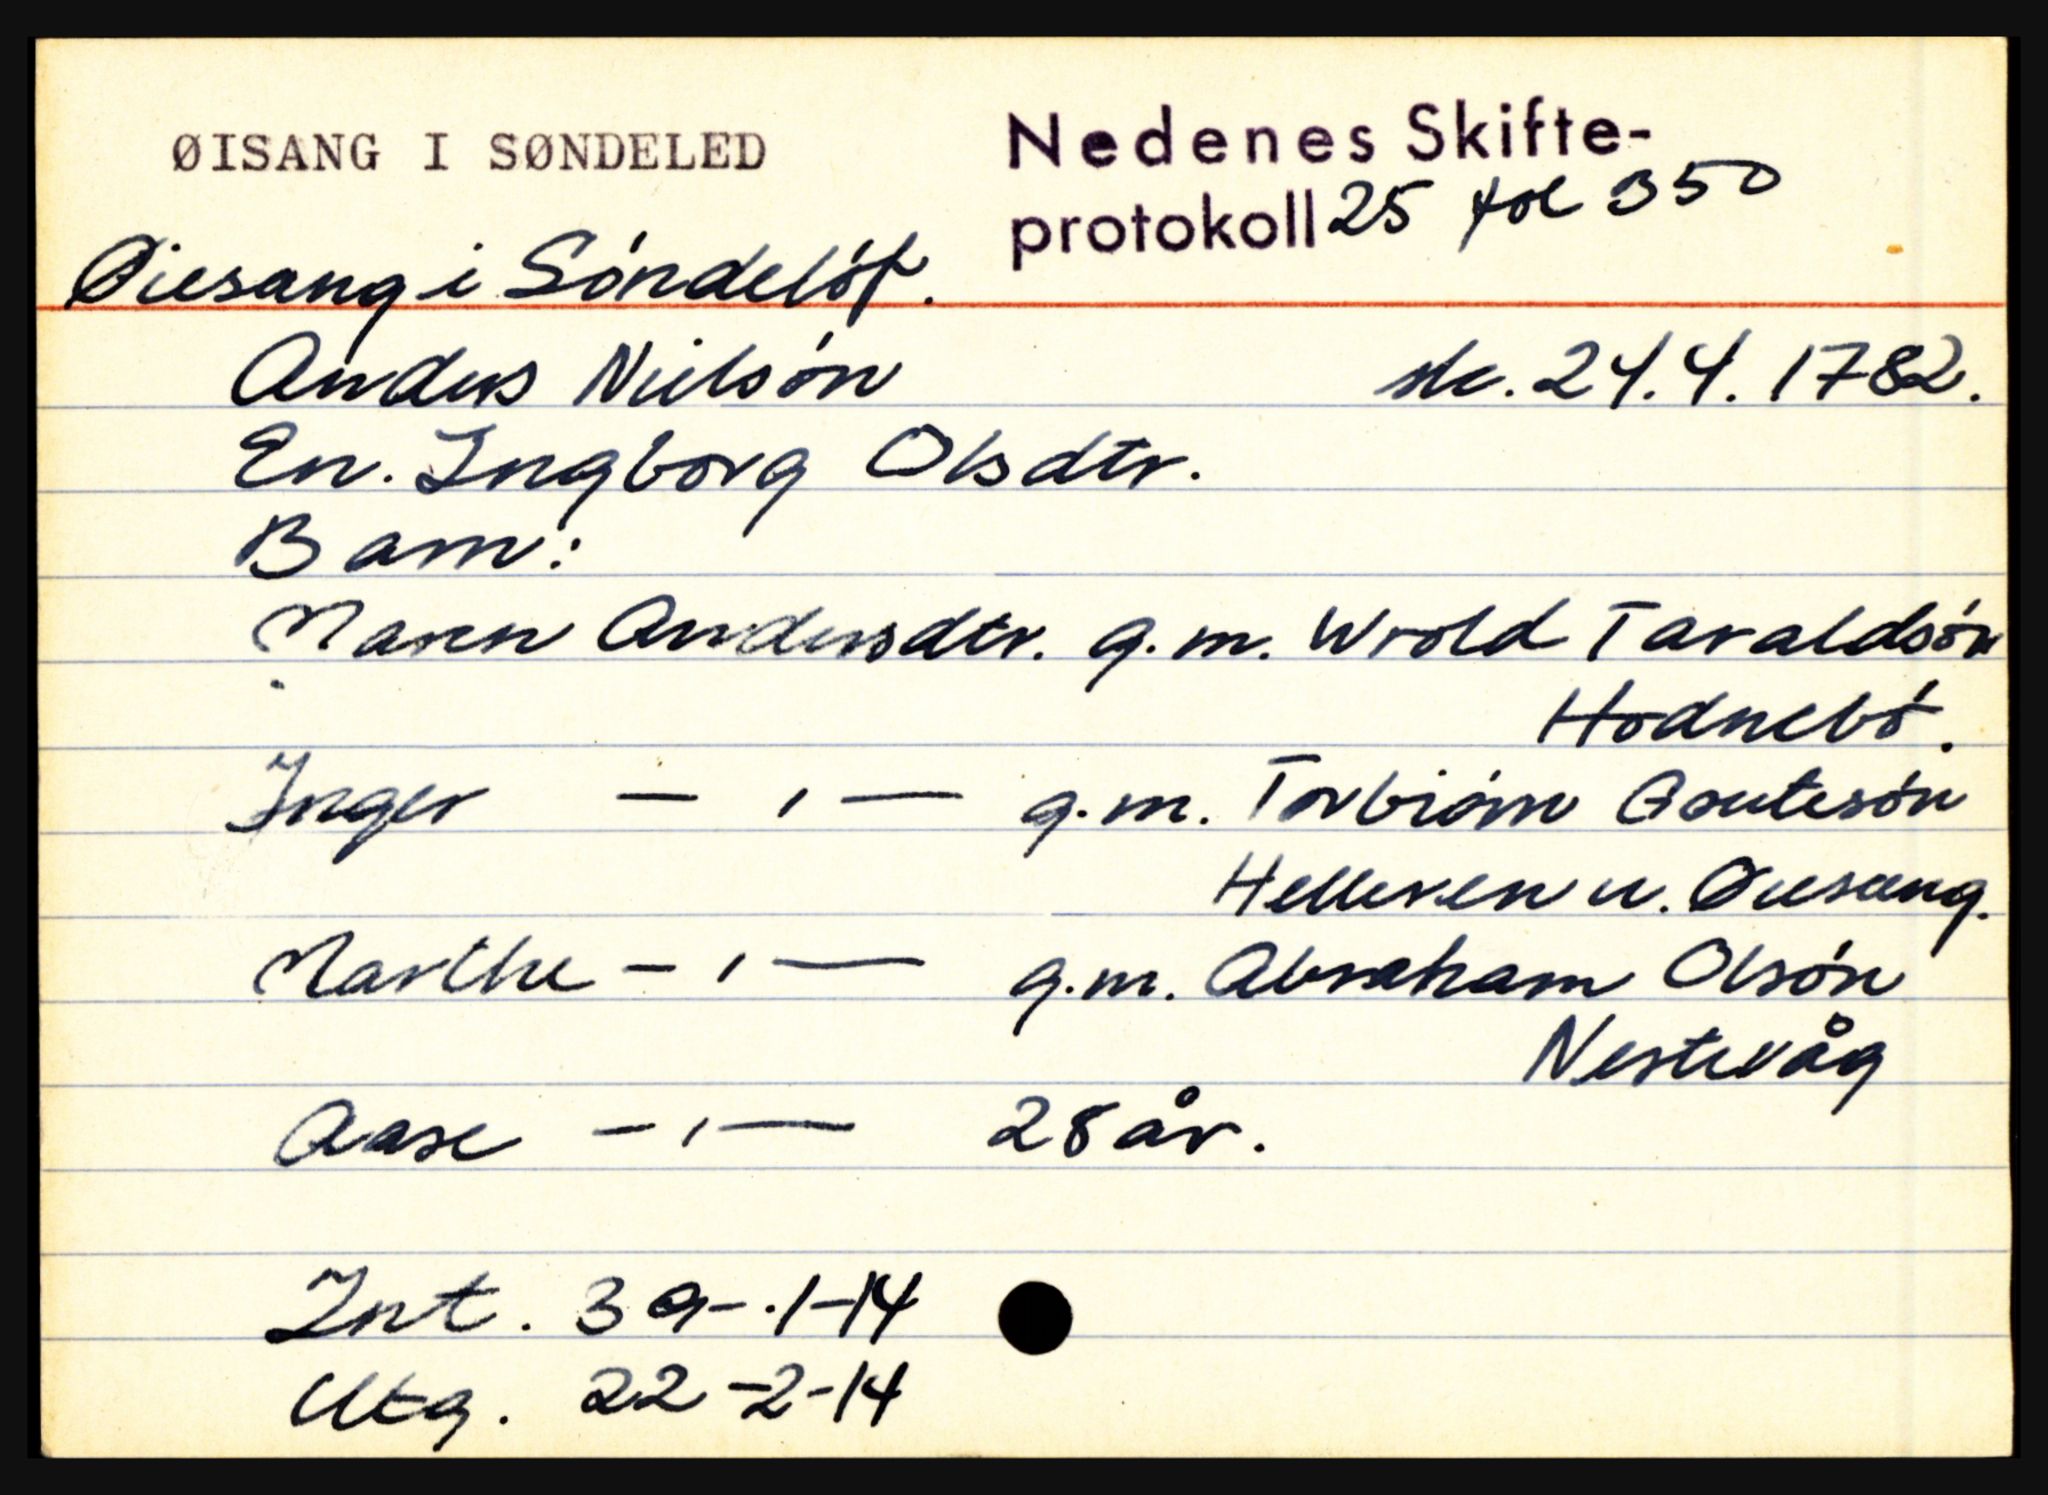 ØISANG I SØNDELED
Nedenes Skifte-
protokoll 25 fol 350
Øiesang i Söndelöf.
Anders Nielsön sk. 24.4.1782.
En. Ingborg Olsdtr.
Barn:
Maren Andersdtr. g.m. Wrold Taraldsön
Hodnebö.
Inger — , — g.m. Torbiörn Gautesön
Helleren u. Øiesang.
Marthe — , — g.m. Abraham Olsön
Nestevåg
Aase — , — 28 år.
Int. 39-1-14
Utg. 22-2-14